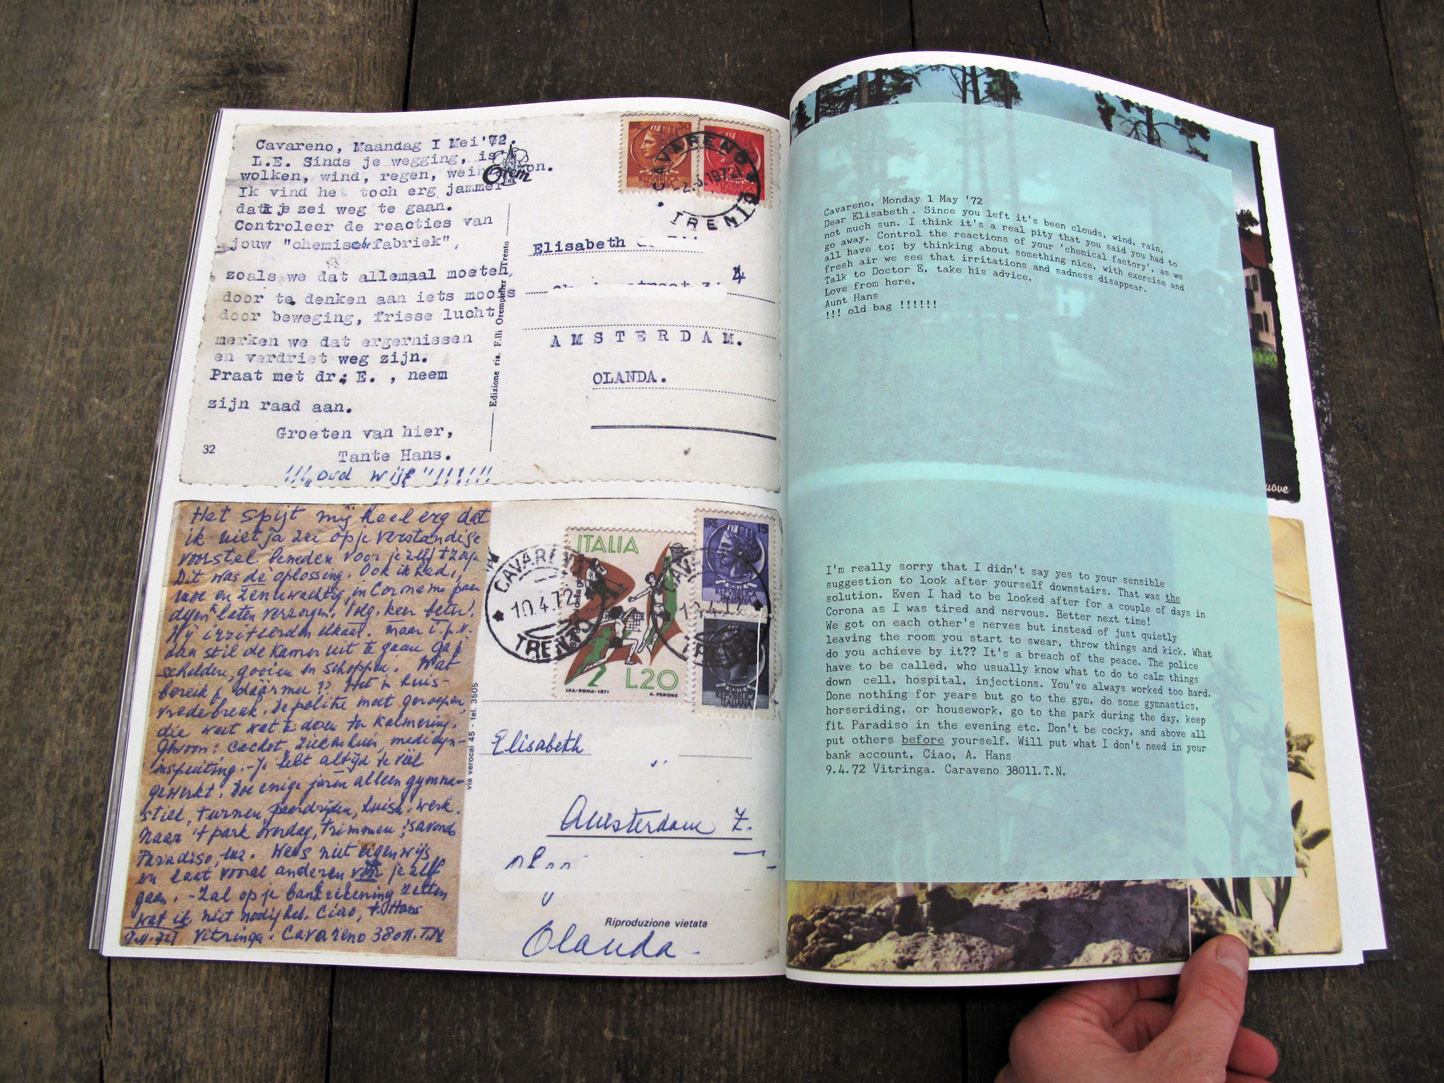 Cavareno, Maandag I Mei '72.
L.E. Sinds je wegging, is
wolken, wind, regen, wein on.
Ik vind het toch erg jammer
dat je zei weg te gaan.
Controleer de reacties van
jouw "chemischefabriek",
zoals we dat allemaal moeten,
door te denken aan iets moois
door beweging, frisse lucht
merken we dat ergernissen
en verdriet weg zijn.
Praat met dr. E. , neem
zijn raad aan.
Groeten van hier,
Tante Hans.
!!!, oud wijf "!!!!!!!
32
Orem
Edizione ris. F.lli Orempuller Trento
CAVARENO
2.5.197
TRENTO
Elisabeth
AMSTERDAM.
OLANDA.
Het spijt mij heel erg dat
ik niet ja zei op je verstandige
voorstel beneden voor jezelf t zorgen
Dit was de oplossing. Ook ik had,
moe en zenuwachtig, in Corona me paar
dagen laten verzorgen. Volg. keer beter!
Wij irriteerden elkaar. maar i.p.v.
dan stil de kamer uit te gaan ga je
schelden, gooien en schoppen. Wat
bereik je daarmee?? Het is huis-
vredebreuk. De politie moet geroepen
die weet wat te doen ter kalmering.
Gewoon: cachot, ziekenhuis, medicijn-
inspuiting. - Je hebt altijd te veel
gewerkt. Doe enige jaren alleen gymna-
stiek, turnen, paardrijden, huish. werk.
Naar 't park overdag, trimmen, 's avonds
Paradiso, enz. Wees niet eigenwijs
en laat vooral anderen vóór jezelf
gaan. - Zal op je bankrekening zetten
wat ik niet nodig heb. Ciao, t. Hans
9.4.72 Vitringa. Cavareno 38011.T.N.
via verocai 45 - tel. 3505
CAVARENO
10.4.72
TRENTO
ITALIA
L20
I.P.S.-ROMA-1971
A. PERONE
LIRE 15
Elisabeth
Amsterdam Z.
Riproduzione vietata
Olanda.
Cavareno, Monday 1 May '72
Dear Elisabeth. Since you left it's been clouds, wind, rain,
not much sun. I think it's a real pity that you said you had to
go away. Control the reactions of your 'chemical factory', as we
all have to; by thinking about something nice, with exercise and
fresh air we see that irritations and sadness disappear.
Talk to Doctor E, take his advice.
Love from here,
Aunt Hans
!!! old bag !!!!!!
I'm really sorry that I didn't say yes to your sensible
suggestion to look after yourself downstairs. That was the
solution. Even I had to be looked after for a couple of days in
Corona as I was tired and nervous. Better next time!
We got on each other's nerves but instead of just quietly
leaving the room you start to swear, throw things and kick. What
do you achieve by it?? It's a breach of the peace. The police
have to be called, who usually know what to do to calm things
down cell, hospital, injections. You've always worked too hard.
Done nothing for years but go to the gym, do some gymnastics,
horseriding, or housework, go to the park during the day, keep
fit. Paradiso in the evening etc. Don't be cocky, and above all
put others before yourself. Will put what I don't need in your
bank account, Ciao, A. Hans
9.4.72 Vitringa. Caraveno 38011.T.N.